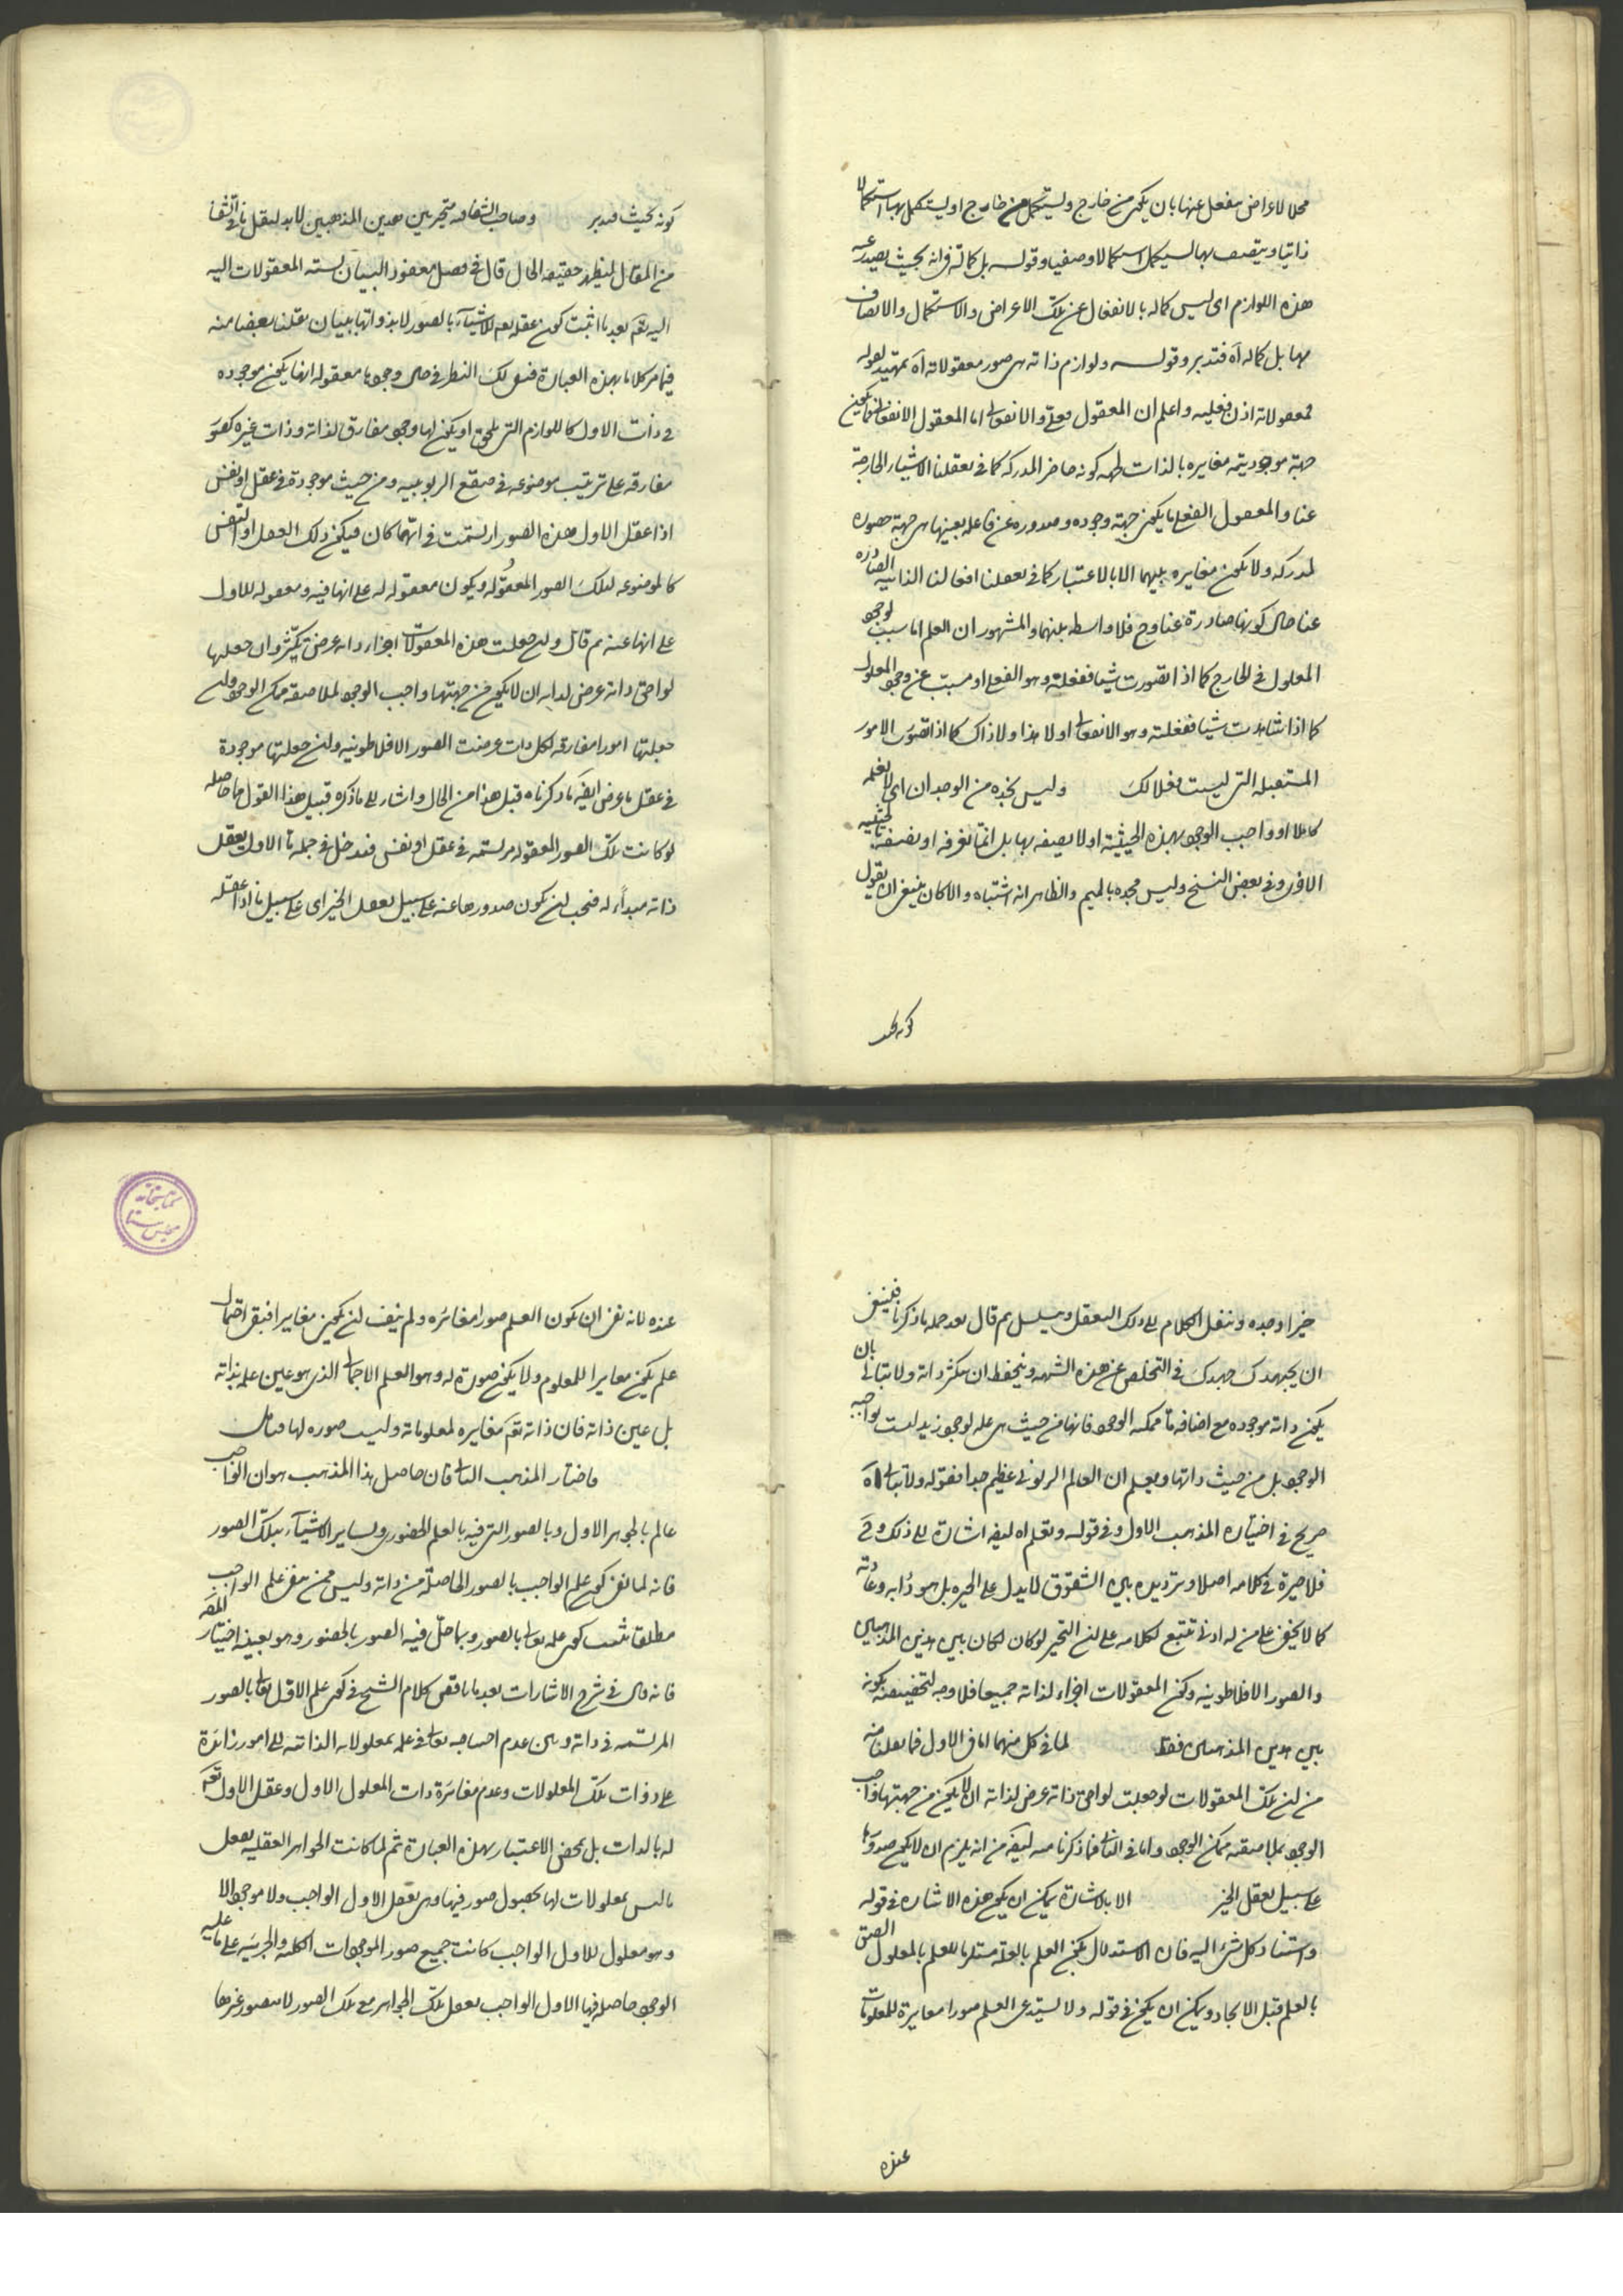 محلا لاعراض ينفعل عنها بان يكون من خارج ويستكمل من خارج او يستكمل بها استكمالا
ذاتيا ويتصف بها ليستكمل استكمالا وصفيا وقوله بل كماله في انه بحيث يصدر عنه
هذه اللوازم اى ليس كماله بالانفعال عن تلك الاعراض والاستكمال والاتصاف
بها بل كماله آه فتدبر وقوله ولوازم ذاته هى صور معقولاته آه تمهيد لقوله
فمعقولاته اذن فعلية واعلم ان المعقول فعلى وانفعالى اما المعقول الانفعالى فما يكون
جهة موجوديته مغايرة بالذات لجهة كونه حاضر المدركه كما فى تعقلنا الاشياء الخارجة
عنا والمعقول الفعلى ما يكون جهة وجوده وصدوره عن فاعله بعينها هى جهة حصوله
لمدركه ولا يكون مغايرة بينهما الا بالاعتبار كما فى تعقلنا افعالنا الذاتية الصادرة
عنا حال كونها صادرة عنا وح فلا واسطة بينهما والمشهور ان العلم اما سبب لوجود
المعلول فى الخارج كما اذا تصورت شيئا ففعلته وهو الفعلى او مسبب عن وجود المعلول
كما اذا شاهدت شيئا فعقلته وهو الانفعالى او لا هذا ولا ذاك كما اذا تصور الامور
المستقبلة التى ليست فعلا لك وليس نجده من الوجدان اى لا نعلمه
كاملا او واجب الوجود بهذه الحيثية او لا نصفه بها بل انما نعرفه او نصفه بالحيثية
الاخرى وفى بعض النسخ وليس مجده بالميم والظاهر انه اشتباه والا كان ينبغى ان يقول
كونه بحيث
كونه بحيث فتدبر وصاحب الشفا فيه متحير بين هذين المذهبين لا بد لنقل ما فى الشفا
من المقال ليظهر حقيقة الحال قال فى فصل معقود لبيان نسبة المعقولات اليه
اليه تعالى بعد ما اثبت كون عقله تعالى للاشياء بالصور لا بذواتها ببيان نقلنا بعضا منه
فيما مر كلاما بهذه العبارة فبقى لك النظر فى حال وجودها معقولة انها يكون موجودة
فى ذات الاول كاللوازم التى تلحقه او يكون لها وجود مفارق لذاته وذات غيره كصور
مفارقة على ترتيب موضوعة فى صقع الربوبية ومن حيث موجودة فى عقل او نفس
اذا عقل الاول هذه الصور ارتسمت فى ايهما كان فيكون ذلك العقل او النفس
كالموضوعة لتلك الصور المعقولة ويكون معقولة له على انها فيه ومعقولة للاول
على انها عنه ثم قال وان جعلت هذه المعقولات اجزاء ذاته عرض تكثر وان جعلتها
لواحق ذاته عرض لذاته ان لا يكون من جهتها واجب الوجود لملاصقة ممكن الوجود وان
جعلتها امورا مفارقة لكل ذات عرضت الصور الافلاطونية وان جعلتها موجودة
فى عقل ما عرض ايضا ما ذكرناه قبل هذا من المحال واشار الى ما ذكره قبيل هذا القول بما حاصله
لو كانت تلك الصور المعقولة مرتسمة فى عقل او نفس فتدخل فى جملة ما الاول يعقل
ذاته مبدأ له فيجب ان يكون صدورها عنه على سبيل تعقل الخير اى على سبيل ما اذا عقله
خيرا وجده وننقل الكلام الى ذلك التعقل ويتسلسل ثم قال بعد جملة ما ذكرنا فينبغى
ان تجتهد جهدك فى التخلص عن هذه الشبهة وتتحفظ ان تكثر ذاته ولا تبالى بان
يكون ذاته موجودة مع اضافة ما ممكنة الوجود فانها من حيث هى علة لوجود زيد ليست بواجبة
الوجود بل من حيث ذاتها وتعلم ان العالم الربوبى عظيم جدا فقوله ولا تبالى آه
صريح فى اختياره المذهب الاول وفى قوله وتعلم آه ايضا اشارة الى ذلك وح
فلا حيرة فى كلامه اصلا وترديده بين الشقوق لا يدل على الحيرة بل هو دأبه وعادته
كما لا يخفى على من له ادنى تتبع لكلامه على ان التحير لو كان لكان بين هذين المذهبين
والصور الافلاطونية وكون المعقولات اجزاء لذاته جميعا فلا وجه لتخصيصه بكونه
بين هذين المذهبين فقط لما فى كل منهما اما فى الاول فما نقلنا منه
من ان تلك المعقولات لو جعلت لواحق ذاته عرض لذاته ان لا يكون من جهتها واجب
الوجود بملاصقته ممكن الوجود واما فى الثانى فما ذكرنا منه ايضا من انه يلزم ان لا يكون صدورها
على سبيل تعقل الخير الا بالاشارة يمكن ان يكون هذه الاشارة فى قوله
واستناد كل شئ اليه فان الاستدلال بكون العلم بالعلة مستلزما للعلم بالمعلول
بالعلم قبل الايجاد ويمكن ان يكون فى قوله ولا يستدعى العلم صورا مغايرة للمعلومات
عنده
عنده لانه نفى ان يكون العلم صورا مغايرة ولم ينف ان يكون مغايرا فبقى احتمال
علم يكون مغايرا للمعلوم ولا يكون صورة له وهو العلم الاجمالى الذى هو عين علمه بذاته
بل عين ذاته فان ذاته تعالى مغايرة لمعلوماته وليست صورة لها فتأمل
فاختار المذهب الثانى فان حاصل هذا المذهب هو ان الواجب
عالم بالجوهر الاول وبالصور التى فيه بالعلم الحضورى وبساير الاشياء بتلك الصور
فانه لما نفى كون علم الواجب بالصور الحاصلة من ذاته وليس ممن ينفى علم الواجب
مطلقا ثبت كون علمه تعالى بالصور وبما حل فيه الصور بالحضور وهو بعينه اختيار
فانه قال فى شرح الاشارات بعد ما ناقض كلام الشيخ فى كون علم الاول تعالى بالصور
المرتسمة فى ذاته وبين عدم احتياجه تعالى فى علمه بمعلولاته الذاتية الى امور زائدة
على ذوات تلك المعلولات وعدم مغايرة ذات المعلول الاول وعقل الاول تعالى
له بالذات بل بمحض الاعتبار بهذه العبارة ثم لما كانت الجواهر العقلية تعقل
ما ليس بمعلولات لها بحصول صور فيها وهى تعقل الاول الواجب ولا موجود الا
وهو معلول للاول الواجب كانت جميع صور الموجودات الكلية والجزئية على ما عليه
الوجود حاصلة فيها الاول الواجب يعقل تلك الجواهر مع تلك الصور لا بصور غيرها
كتابخانه مجلس سنا